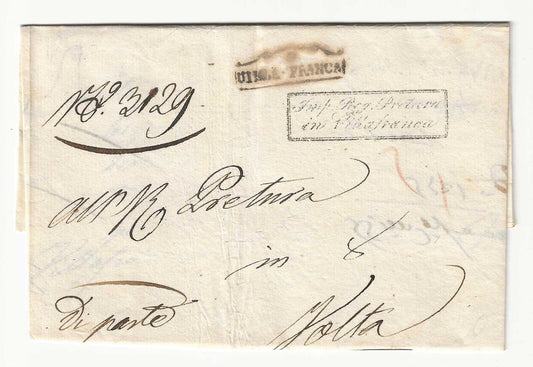 VILLA-FRANCA
Imp. Reg. Pretura
in Villafranca
N.o 3129
all'R Pretura
in
Volta
Di parte